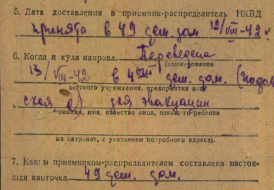 5. Дата доставления в приемник-распределитель НКВД
принята в 49 дет. дом 12/VIII-42 г.
6. Когда и куда направл. Переведена
13/VIII-42 в 4 дет. дом. (Подоль
ская ) для эвакуации
детского учреждения, предприятия или
фамилия, имя, отчество лица, взявшего ребенка
на патронат, с указанием подробного адреса).
7. Каким приемником-распределителем составлена настоя-
щая карточка 49 дет. дом.